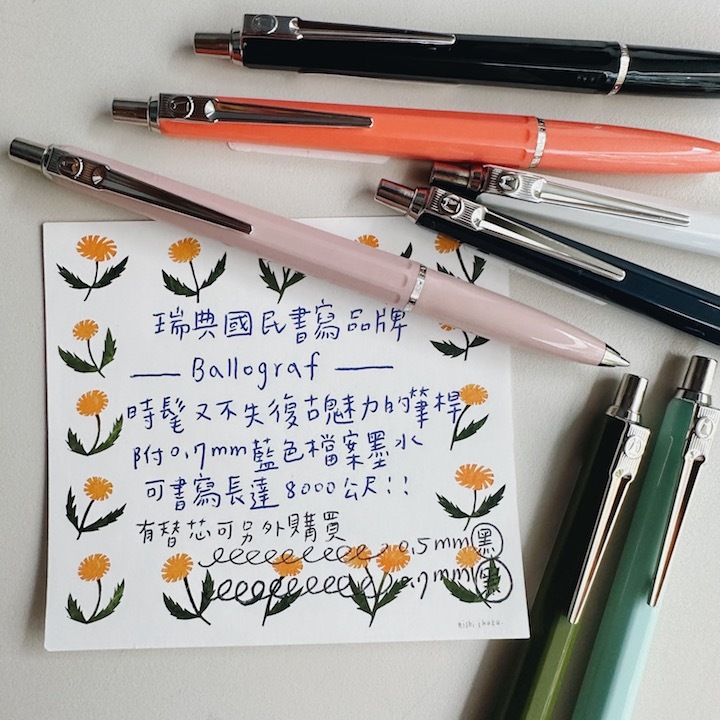 瑞典國民書寫品牌
— Ballograf —
時髦又不失復古魅力的筆桿
附0.7mm藍色檔案墨水
可書寫長達8000公尺!!
有替芯可另外購買
0.5mm黑
0.7mm黑
nishi shuku.